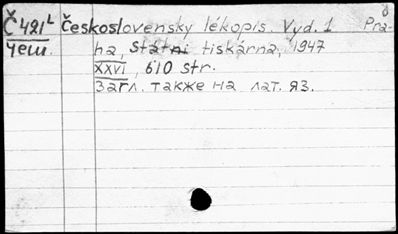 Č 421ᴸ Československy lékopis. Vyd. 1 Pra-
Чеш. ha, Státni tiskárna, 1947
XXVI, 610 str.
Загл. также на лат. яз.